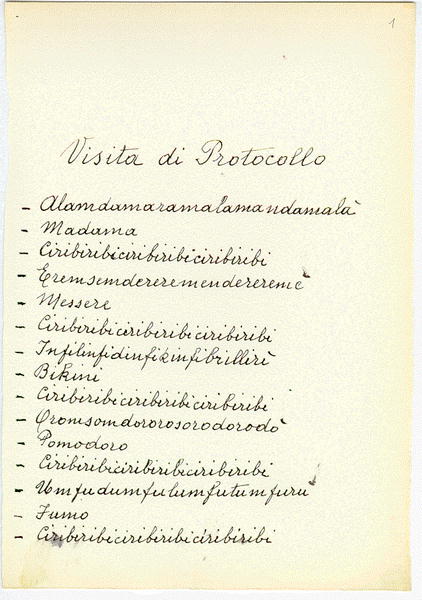 1
Visita di Protocollo
- Alamdamaramalamandamalà
- Madama
- Ciribiribiciribiribiciribiribi
- Eremsemdereremendereremè
- Messere
- Ciribiribiciribiribiciribiribi
- Infilinfidinfikinfibrillirì
- Bikini
- Ciribiribiciribiribiciribiribi
- Oromsomdororosorodorodò
- Pomodoro
- Ciribiribiciribiribiciribiribi
- Umfudumfulumfutumfurù
- Fumo
- Ciribiribiciribiribiciribiribi